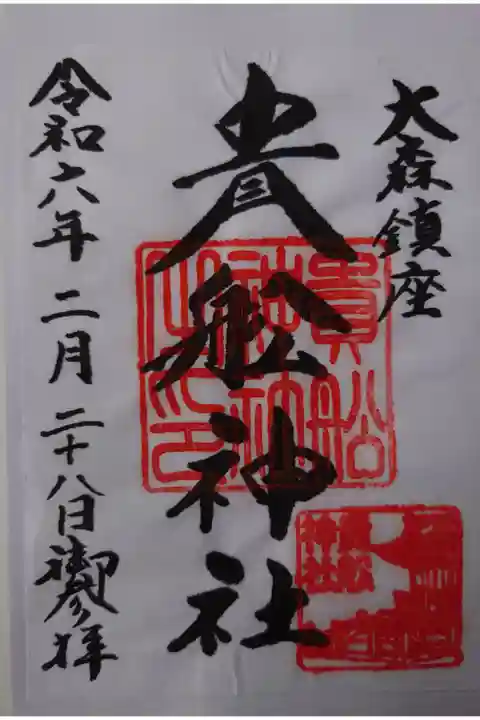 大森鎮座
貴舩神社
令和六年二月二十八日御参拝
貴船
神社